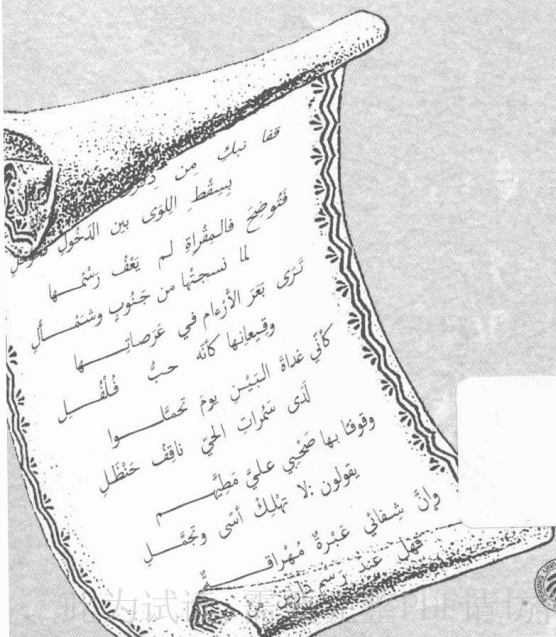 قفا نبكِ مِن
بِسِقْطِ اللِوَى بين الدَخُولِ فحَوْمَلِ
فَتُوضِحَ فالمِقْراةِ لم يَعْفُ رَسْمُـــها
لما نسجتْها من جَنُوبٍ وشَمْــأَلِ
تَرَى بَعَرَ الأَرْءامِ في عَرَصاتِــــها
وقِيعانِها كأنّه حبُّ فُلْفُــلِ
كأنّي غداةَ البَيْنِ يومَ تحمَّلـــوا
لَدَى سَمُراتِ الحيِّ ناقِفُ حَنْظَلِ
وقوفًا بها صَحْبِي عليَّ مَطِيَّهــــم
يقولون :لا تهْلِكْ أسًى وتَجمَّــلِ
وإنَّ شِفائي عَبْرةٌ مُهْراقــــةٌ
فهل عند رَسْمٍ دارِسٍ من